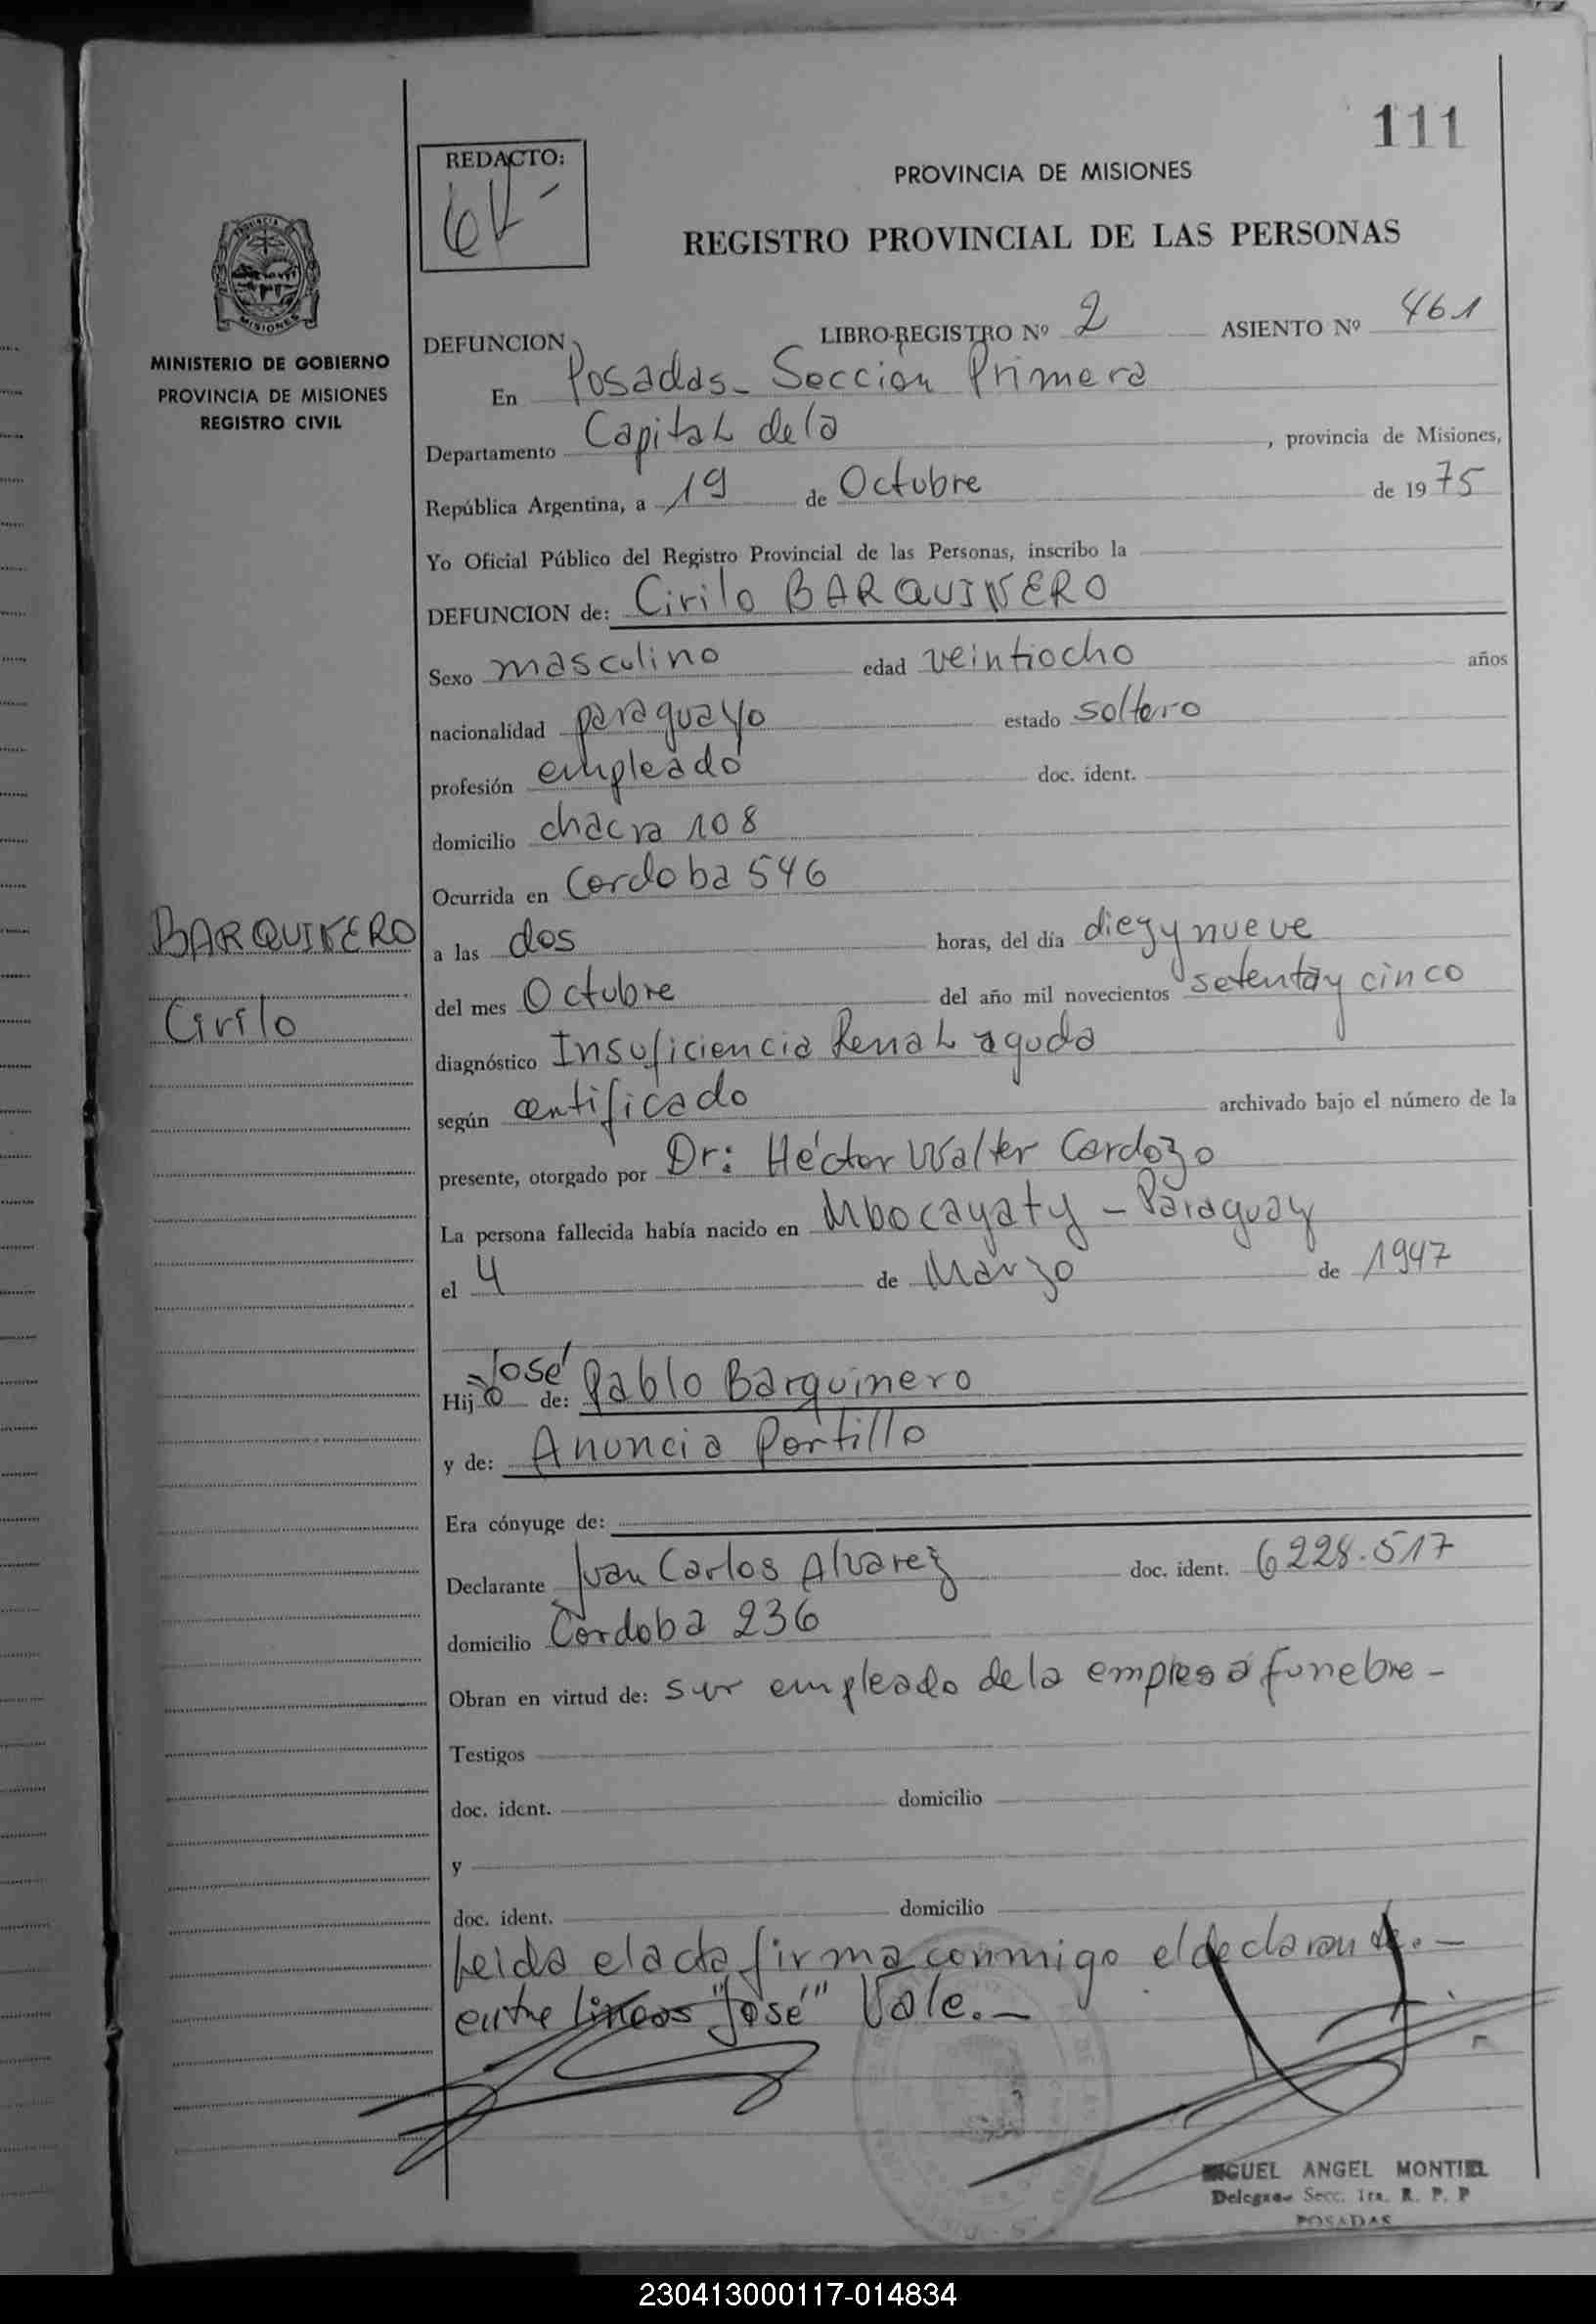 111
REDACTO:
PROVINCIA DE MISIONES
REGISTRO PROVINCIAL DE LAS PERSONAS
MISIONES
MINISTERIO DE GOBIERNO
PROVINCIA DE MISIONES
REGISTRO CIVIL
DEFUNCION LIBRO-REGISTRO Nº 2 ASIENTO Nº 461
En Posadas - Seccion Primera
Departamento Capital de la , provincia de Misiones,
República Argentina, a 19 de Octubre de 1975
Yo Oficial Público del Registro Provincial de las Personas, inscribo la
DEFUNCION de: Cirilo BARQUINERO
Sexo masculino edad veintiocho años
nacionalidad paraguayo estado soltero
profesión empleado doc. ident.
domicilio chacra 108
Ocurrida en Cordoba 546
BARQUINERO
Cirilo
a las dos horas, del día diez y nueve
del mes Octubre del año mil novecientos setenta y cinco
diagnóstico Insuficiencia Renal aguda
según certificado archivado bajo el número de la
presente, otorgado por Dr: Héctor Walter Cardozo
La persona fallecida había nacido en Mbocayaty - Paraguay
el 4 de Marzo de 1947
José
Hijo de: Pablo Barquinero
y de: Anuncia Portillo
Era cónyuge de:
Declarante Juan Carlos Alvarez doc. ident. 6228.517
domicilio Cordoba 236
Obran en virtud de: ser empleado de la empresa funebre -
Testigos
doc. ident. domicilio
y
doc. ident. domicilio
Leida el acta firma conmigo el declarante. -
entre lineas "José" Vale. -
MIGUEL ANGEL MONTIEL
Secc. 1ra. R. P. P
POSADAS
230413000117-014834